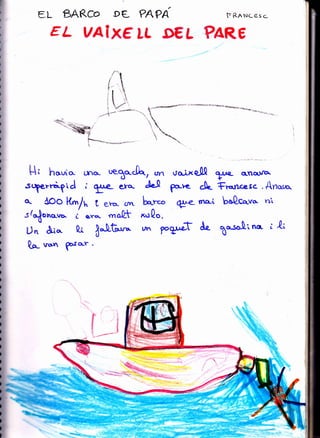 EL BARCO DE PAPÁ
FRANCESC
EL VAIXELL DEL PARE
Hi havia una vegada, un vaixell que anava
superràpid i que era del pare de Francesc. Anava
a 100 Km/h era un barco que mai bolcava ni
s'afonava i era molt xulo.
Un dia li faltava un poquet de gasolina i li
la van posar.